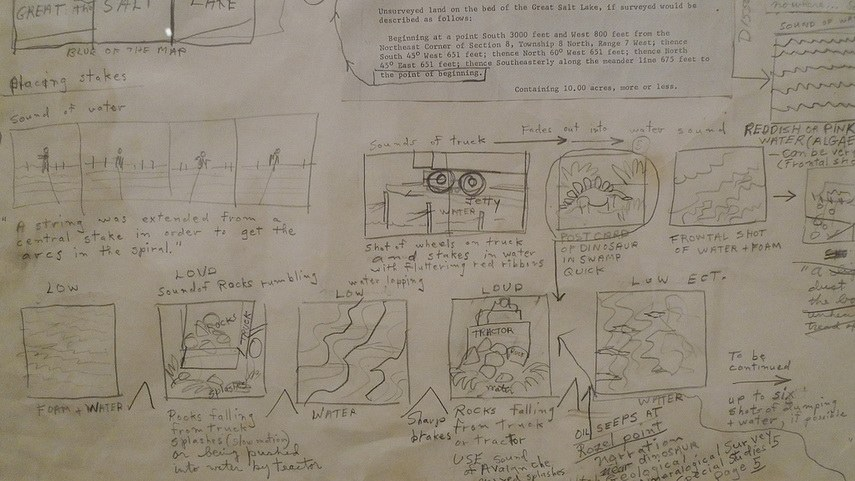 GREAT SALT LAKE
BLUE OF THE MAP
Unsurveyed land on the bed of the Great Salt Lake, if surveyed would be
described as follows;
Beginning at a point South 3000 feet and West 800 feet from the
Northeast Corner of Section 8, Township 8 North, Range 7 West; thence
South 45° West 651 feet; thence North 60° West 651 feet; thence North
45° East 651 feet; thence Southeasterly along the meander line 675 feet to
the point of beginning.
Containing 10.00 acres, more or less.
SOUND OF
Placing stakes
Sound of water
"A string was extended from a
central stake in order to get the
arcs in the spiral."
Sounds of truck
Fades out into water sound
Jetty
WATER
Shot of wheels on truck
and stakes in water
with fluttering red ribbons
water lapping
POSTCARD
OF DINOSAUR
IN SWAMP
QUICK
FRONTAL SHOT
OF WATER + FOAM
REDDISH OR PINK
WATER (ALGAE
can be very
(Frontal
"a
dust
the
LOW
FOAM + WATER
LOUD
sound of Rocks rumbling
ROCKS
TRUCK
splashes
Rocks falling
from truck
splashes
or being pushed
into water by tractor
LOW
WATER
Sharp
brakes
LOUD
TRACTOR
water
Rocks falling
from truck
or tractor
USE Sound
of Avalanche
splashes
LOW ECT.
WATER
OIL SEEPS AT
Rozel point
narration
near dinosaur
Geological Survey
Special Studies 5
page 5
To be
continued
up to six
shots of dumping
+ water, if possible